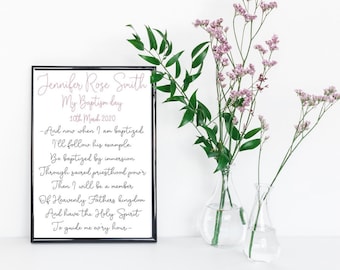 Jennifer Rose Smith
My Baptism day
10th March 2020
~And now when I am baptized
I'll follow his example.
Be baptized by immersion
Through sacred priesthood pow'r
Then I will be a member
Of Heavenly Fathers kingdom
And have the Holy Spirit
To guide me ev'ry hour~